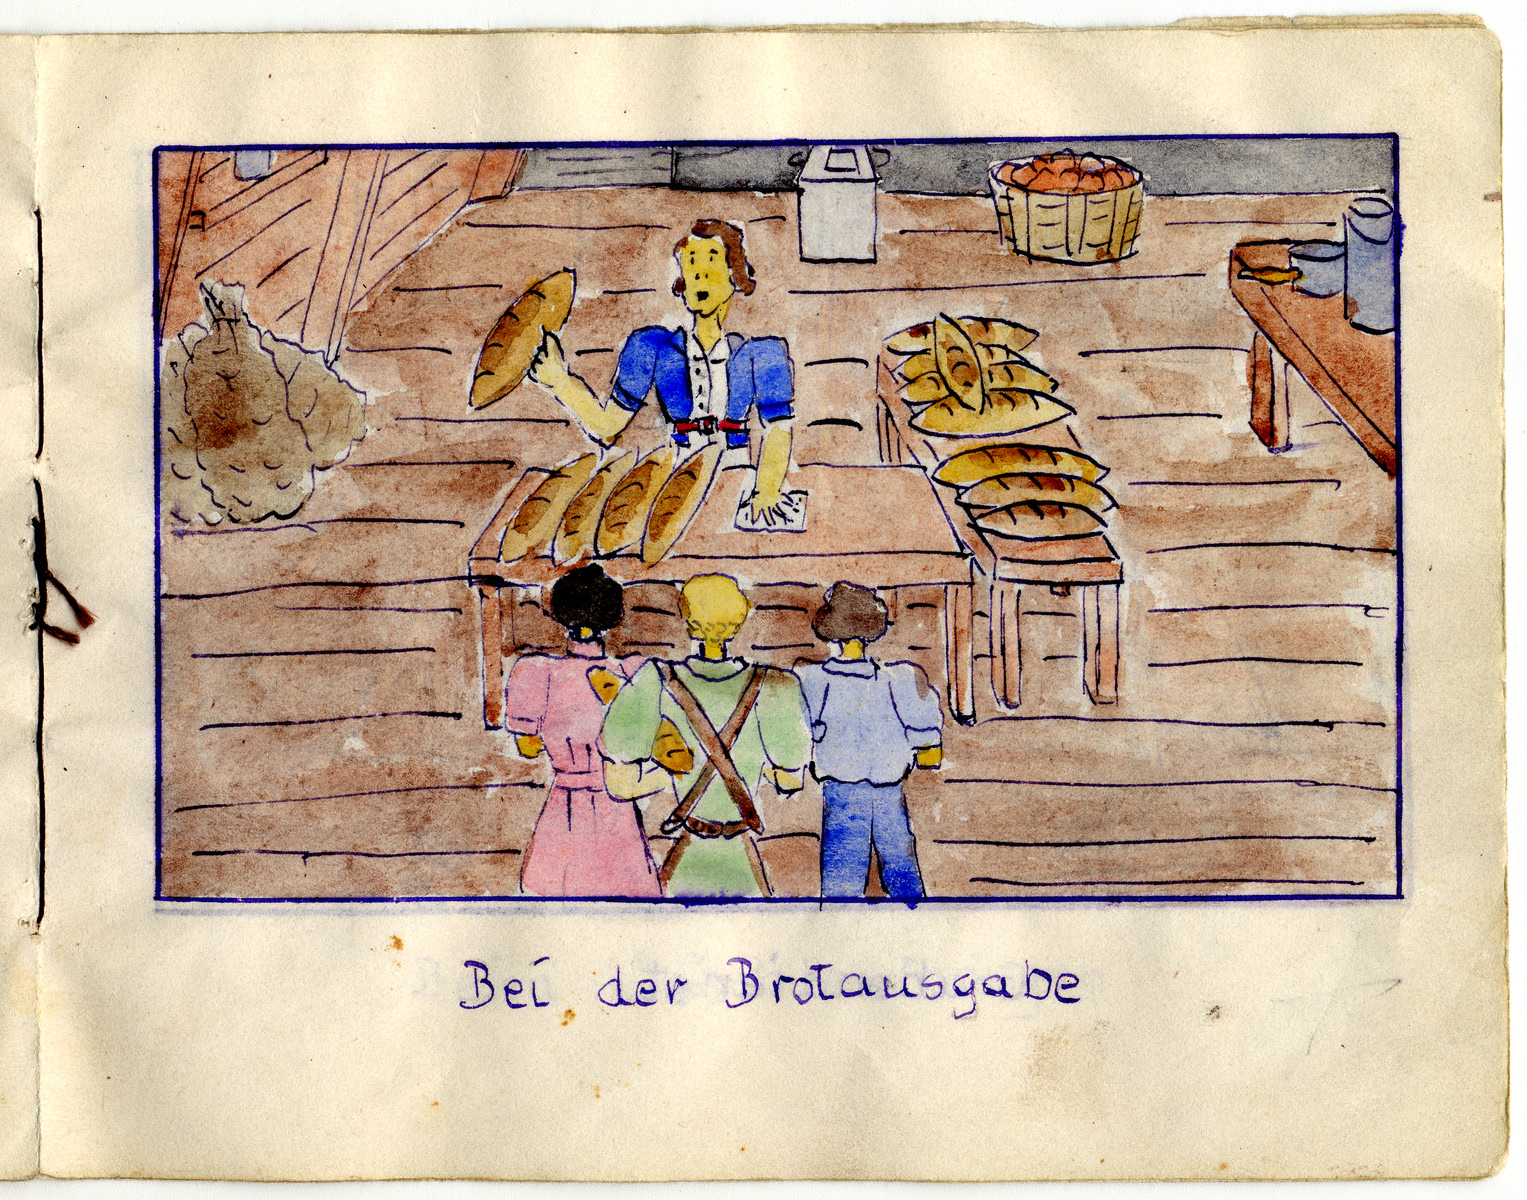 Bei der Brotausgabe